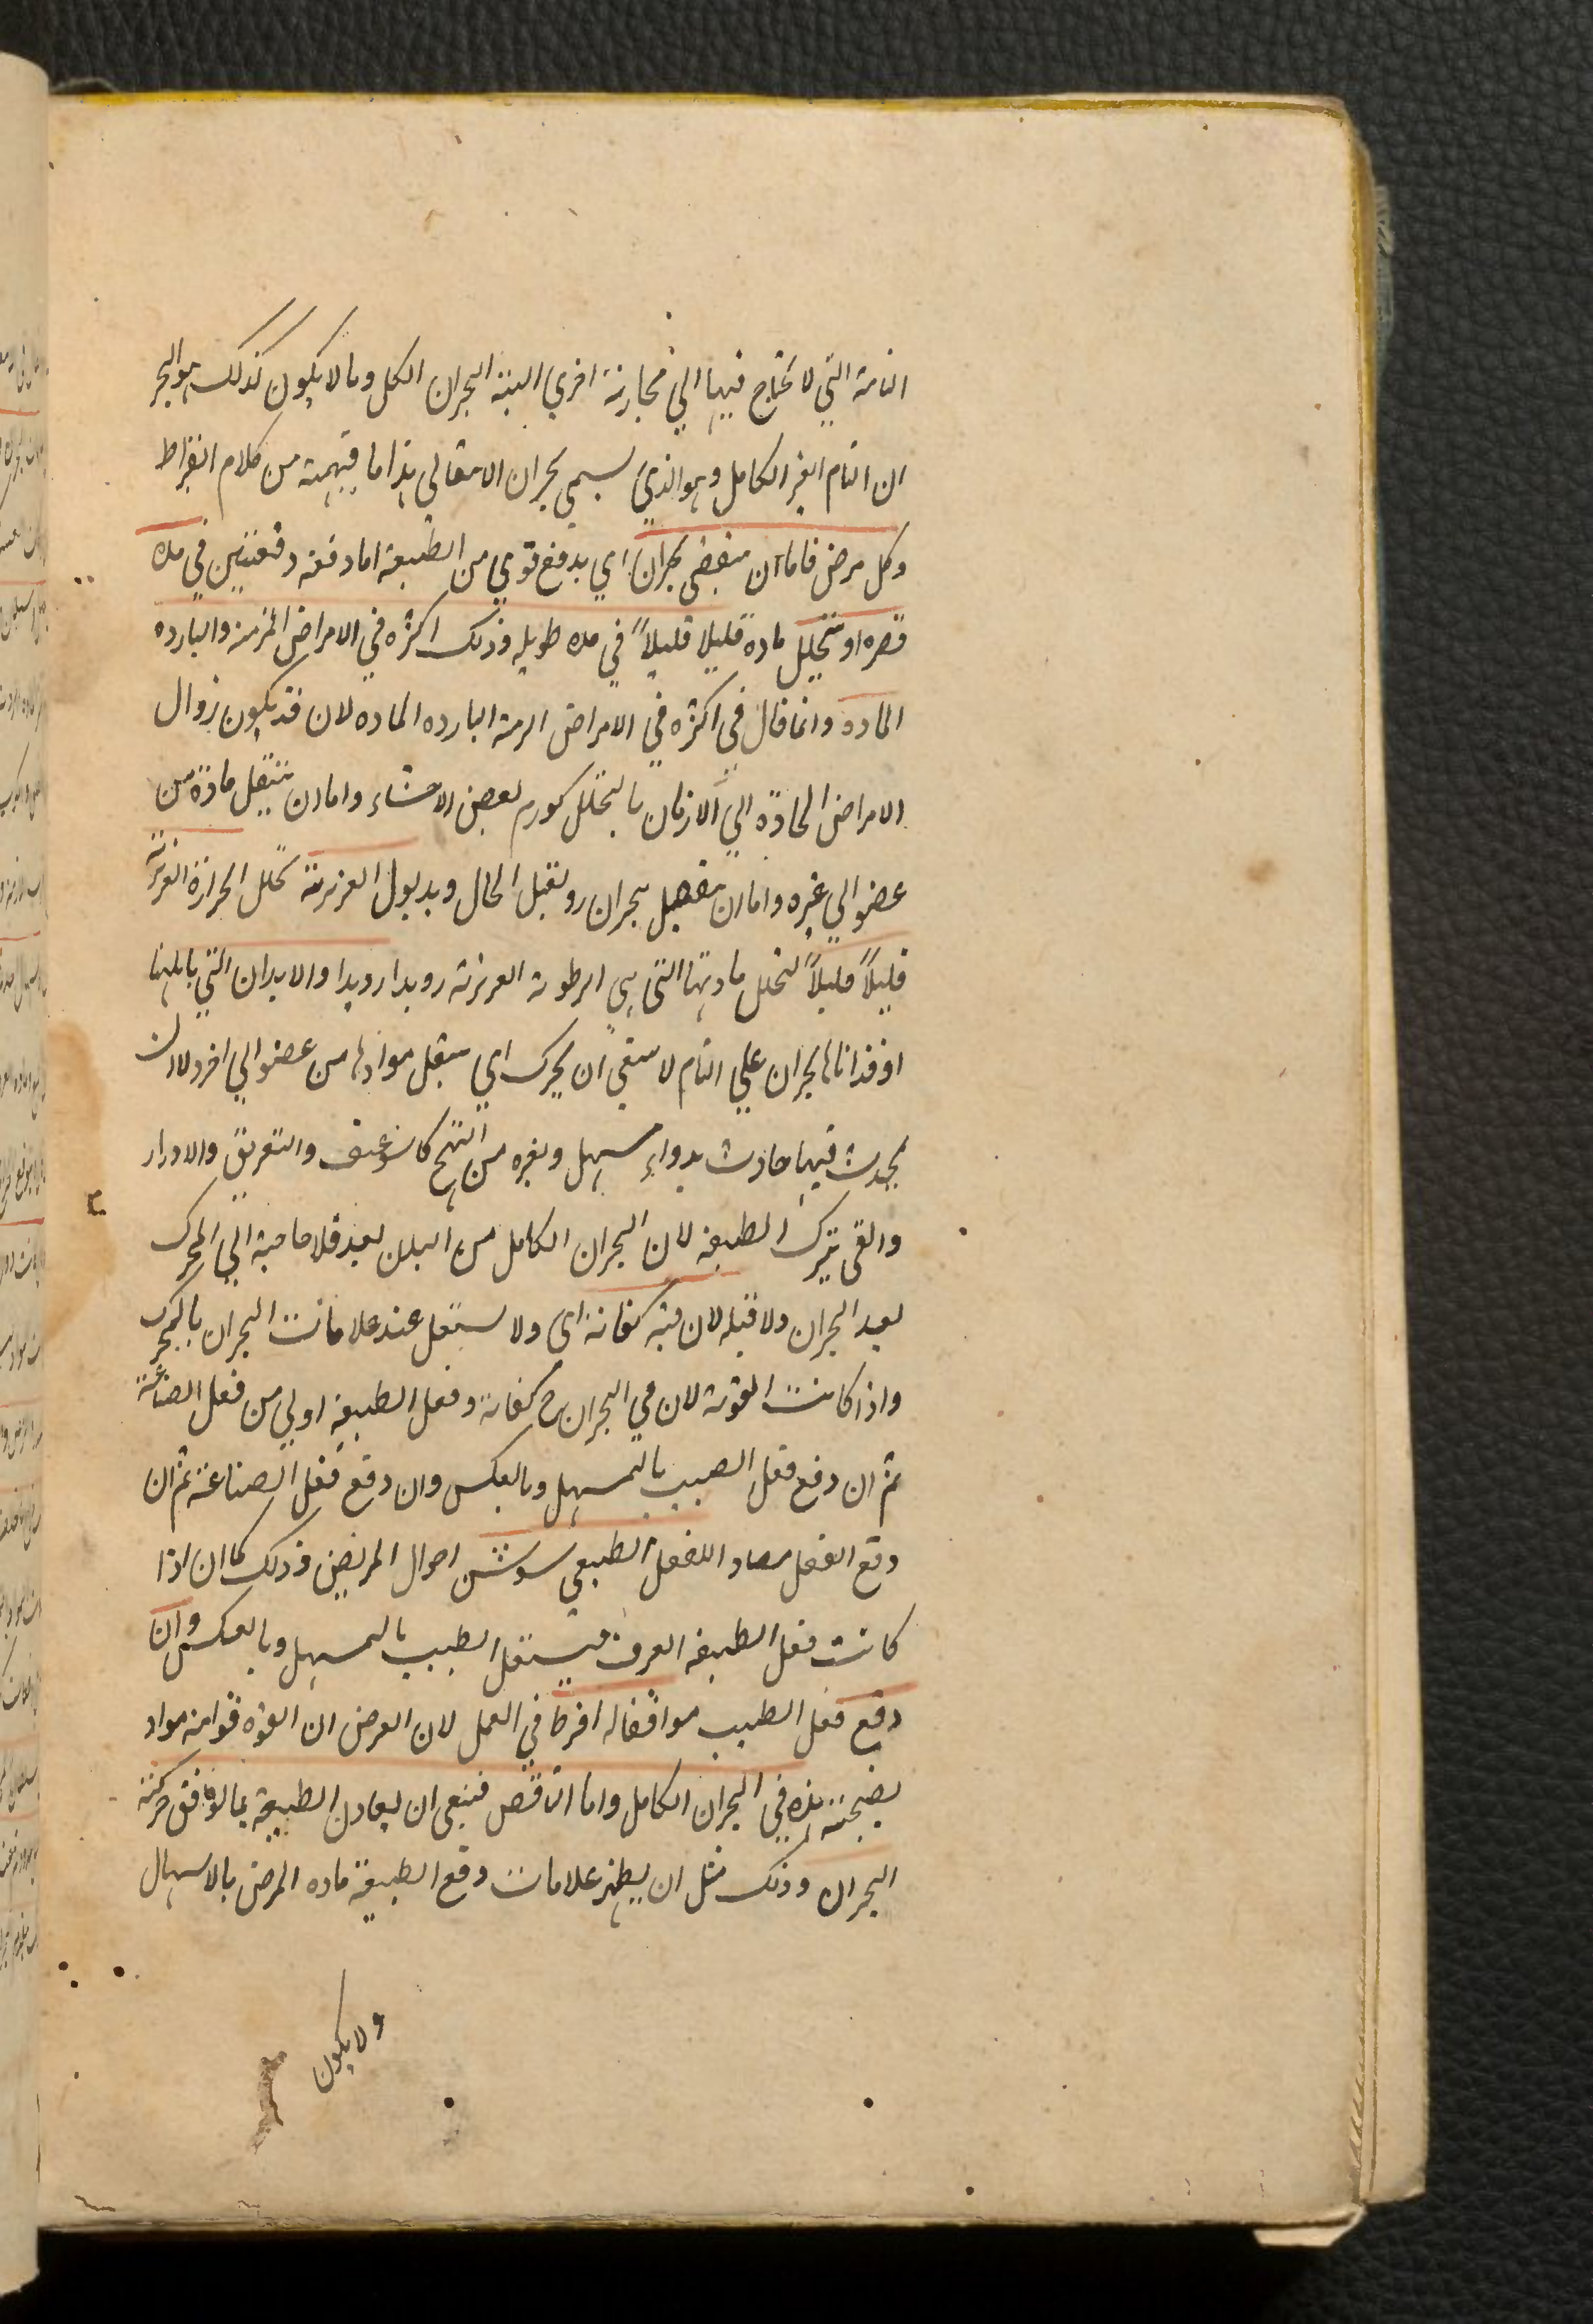 التامة التي لا تحتاج فيها الي محاربة اخري البتة البحران الكل وما لا يكون كذلك هو البحر
ان التام الغير الكامل وهو الذي يسمي بحران الانتقالي هذا ما فهمته من كلام ابقراط
وكل مرض فاما ان ينقضي بحران اي بدفع قوي من الطبيعة اما دفعه دفعتين في مده
قصره او تتحلل مادة قليلا قليلاً في مده طويله وذلك اكثره في الامراض المزمنه والبارده
الماده وانما قال في اكثره في الامراض المزمنة البارده الماده لان قد يكون زوال
الامراض الحادّة الي الازمان بالتحلل كورم بعض الاحشاء واما ان تنتقل مادّة من
عضو الي غيره واما ان بحران ردي الحال ويذبول الغريزية تحلل الحرارة الغريزية
قليلاً قليلاً لتحلل مادتها التي هي الرطوبة الغريزية رويدا رويدا والابدان التي ياتيها
او قد اتاها بحران علي التام لا ينبغي ان يحرك اي ينقل موادها من عضو الي اخر ولا ان
يحدث فيها حادث بدواء مسهل وبغيره من التهيج والتعريق والادرار
والقي تترك الطبيعة لان البحران الكامل من البدن بعد فلا حاجة الي المحرك
بعد البحران ولا قبله لان فيه كفاية اي ولا يستعمل عند علامات البحران بالمحرك
واذا كانت القوية لان في البحران ح كفاية وفعل الطبيعة اولي من فعل الصناعة
ثم ان دفع فعل الطبيب بالمسهل وبالعكس وان وقع فعل الصناعة ثم ان
وقع الفعل مضادا للفعل الطبيعي احوال المريض وذلك كما ان اذا
كانت فعل الطبيعة العرق فيستعمل الطبيب بالمسهل وبالعكس وان
وقع فعل الطبيب موافقا له افرط في العمل لان الغرض ان القوة قوية مواد
نضيجة هذه في البحران الكامل واما الناقص فينبغي ان يعاون الطبيعة بما يوافق حركته
البحران وذلك مثل ان يظهر علامات دفع الطبيعة ماده المرض بالاسهال
ولا يكون